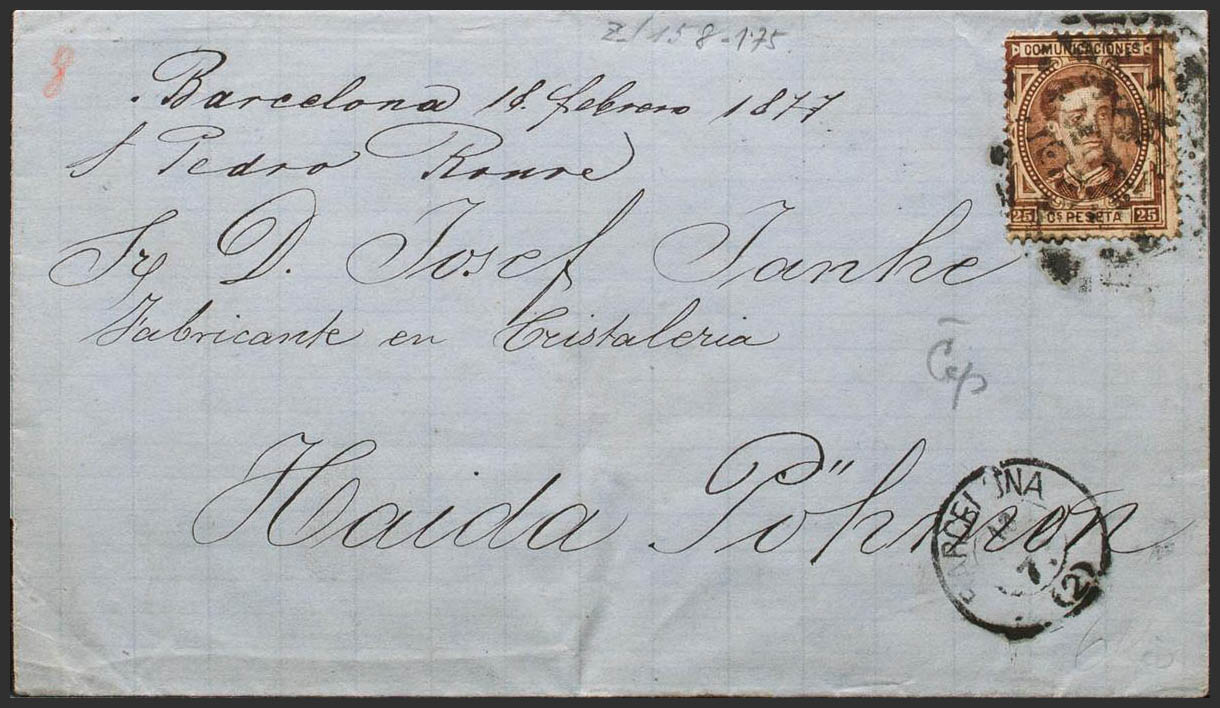 Z-/158-175
Barcelona 18. febrero 1877
Pedro Roure
COMUNICACIONES
25 Cs PESETA 25
Sr D. Josef Janke
Fabricante en Cristaleria
Haida Pöhmon
BARCELONA
(2)